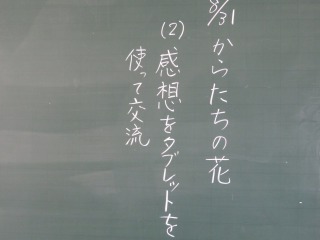 8/31 からたちの花
(2) 感想をタブレットを
使って交流